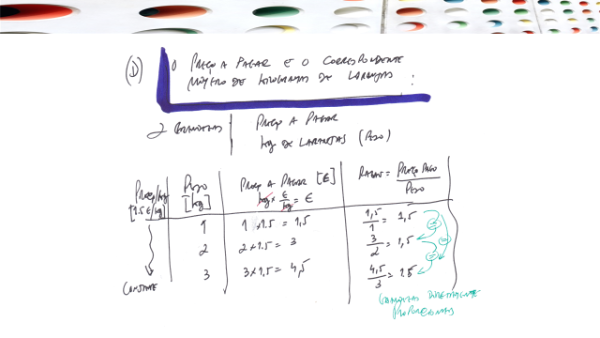 (D) O PREÇO A PAGAR E O CORRESPONDENTE
NÚMERO DE KILOGRAMAS DE LARANJAS.
2 GRANDEZAS
PREÇO A PAGAR
kg DE LARANJAS (PESO)
PREÇO/kg
[1.5 €/kg]
CONSTANTE
PESO
[kg]
PREÇO A PAGAR [€]
kg × €/kg = €
RAZÃO = PREÇO PAGO/PESO
1
1 × 1.5 = 1,5
1,5/1 = 1,5
2
2 × 1.5 = 3
3/2 = 1,5
3
3 × 1.5 = 4,5
4,5/3 = 1.5
GRANDEZAS DIRETAMENTE
PROPORCIONAIS